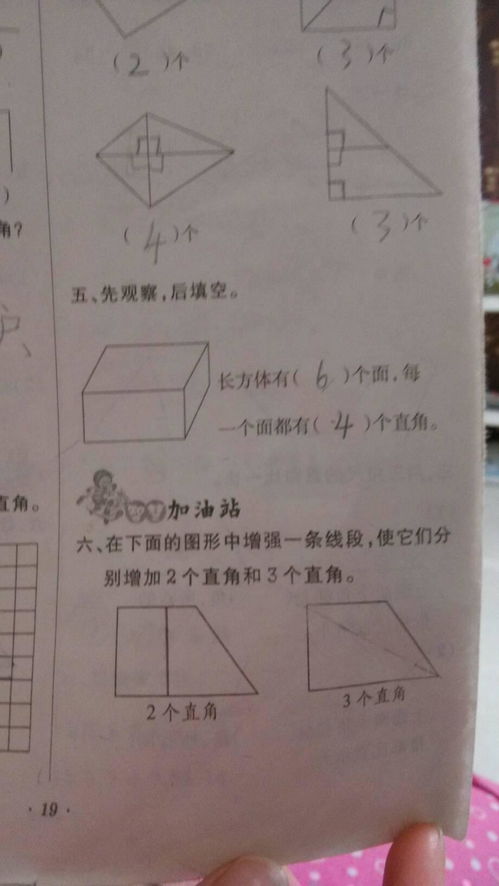 (2)个
(3)个
角?
(4)个
(3)个
五、先观察,后填空。
长方体有(6)个面,每
一个面都有(4)个直角。
直角。
加油站
六、在下面的图形中增强一条线段,使它们分
别增加2个直角和3个直角。
2个直角
3个直角
·19·